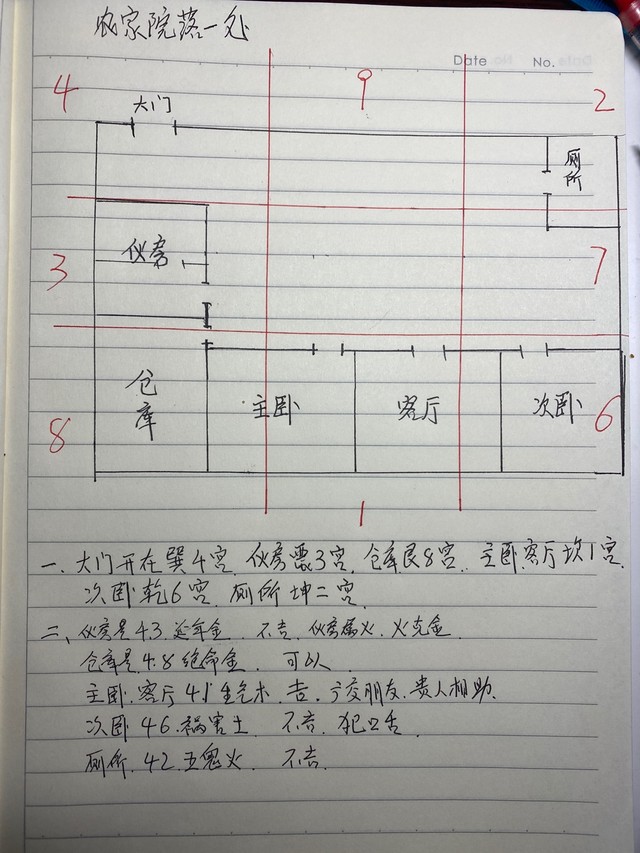 农家院落一处
Date No.
4 9 2
大门
厕所
伙房
3 7
仓库 主卧 客厅 次卧
8 1 6
一、大门开在巽4宫、伙房震3宫、仓库艮8宫、主卧、客厅坎1宫、
次卧乾6宫、厕所坤二宫
二、伙房是4.3延年金、不吉、伙房属火、火克金
仓库是4.8绝命金、可以
主卧、客厅41生气木、吉、广交朋友、贵人相助、
次卧46、祸害土 不吉、犯口舌
厕所、42五鬼火 不吉